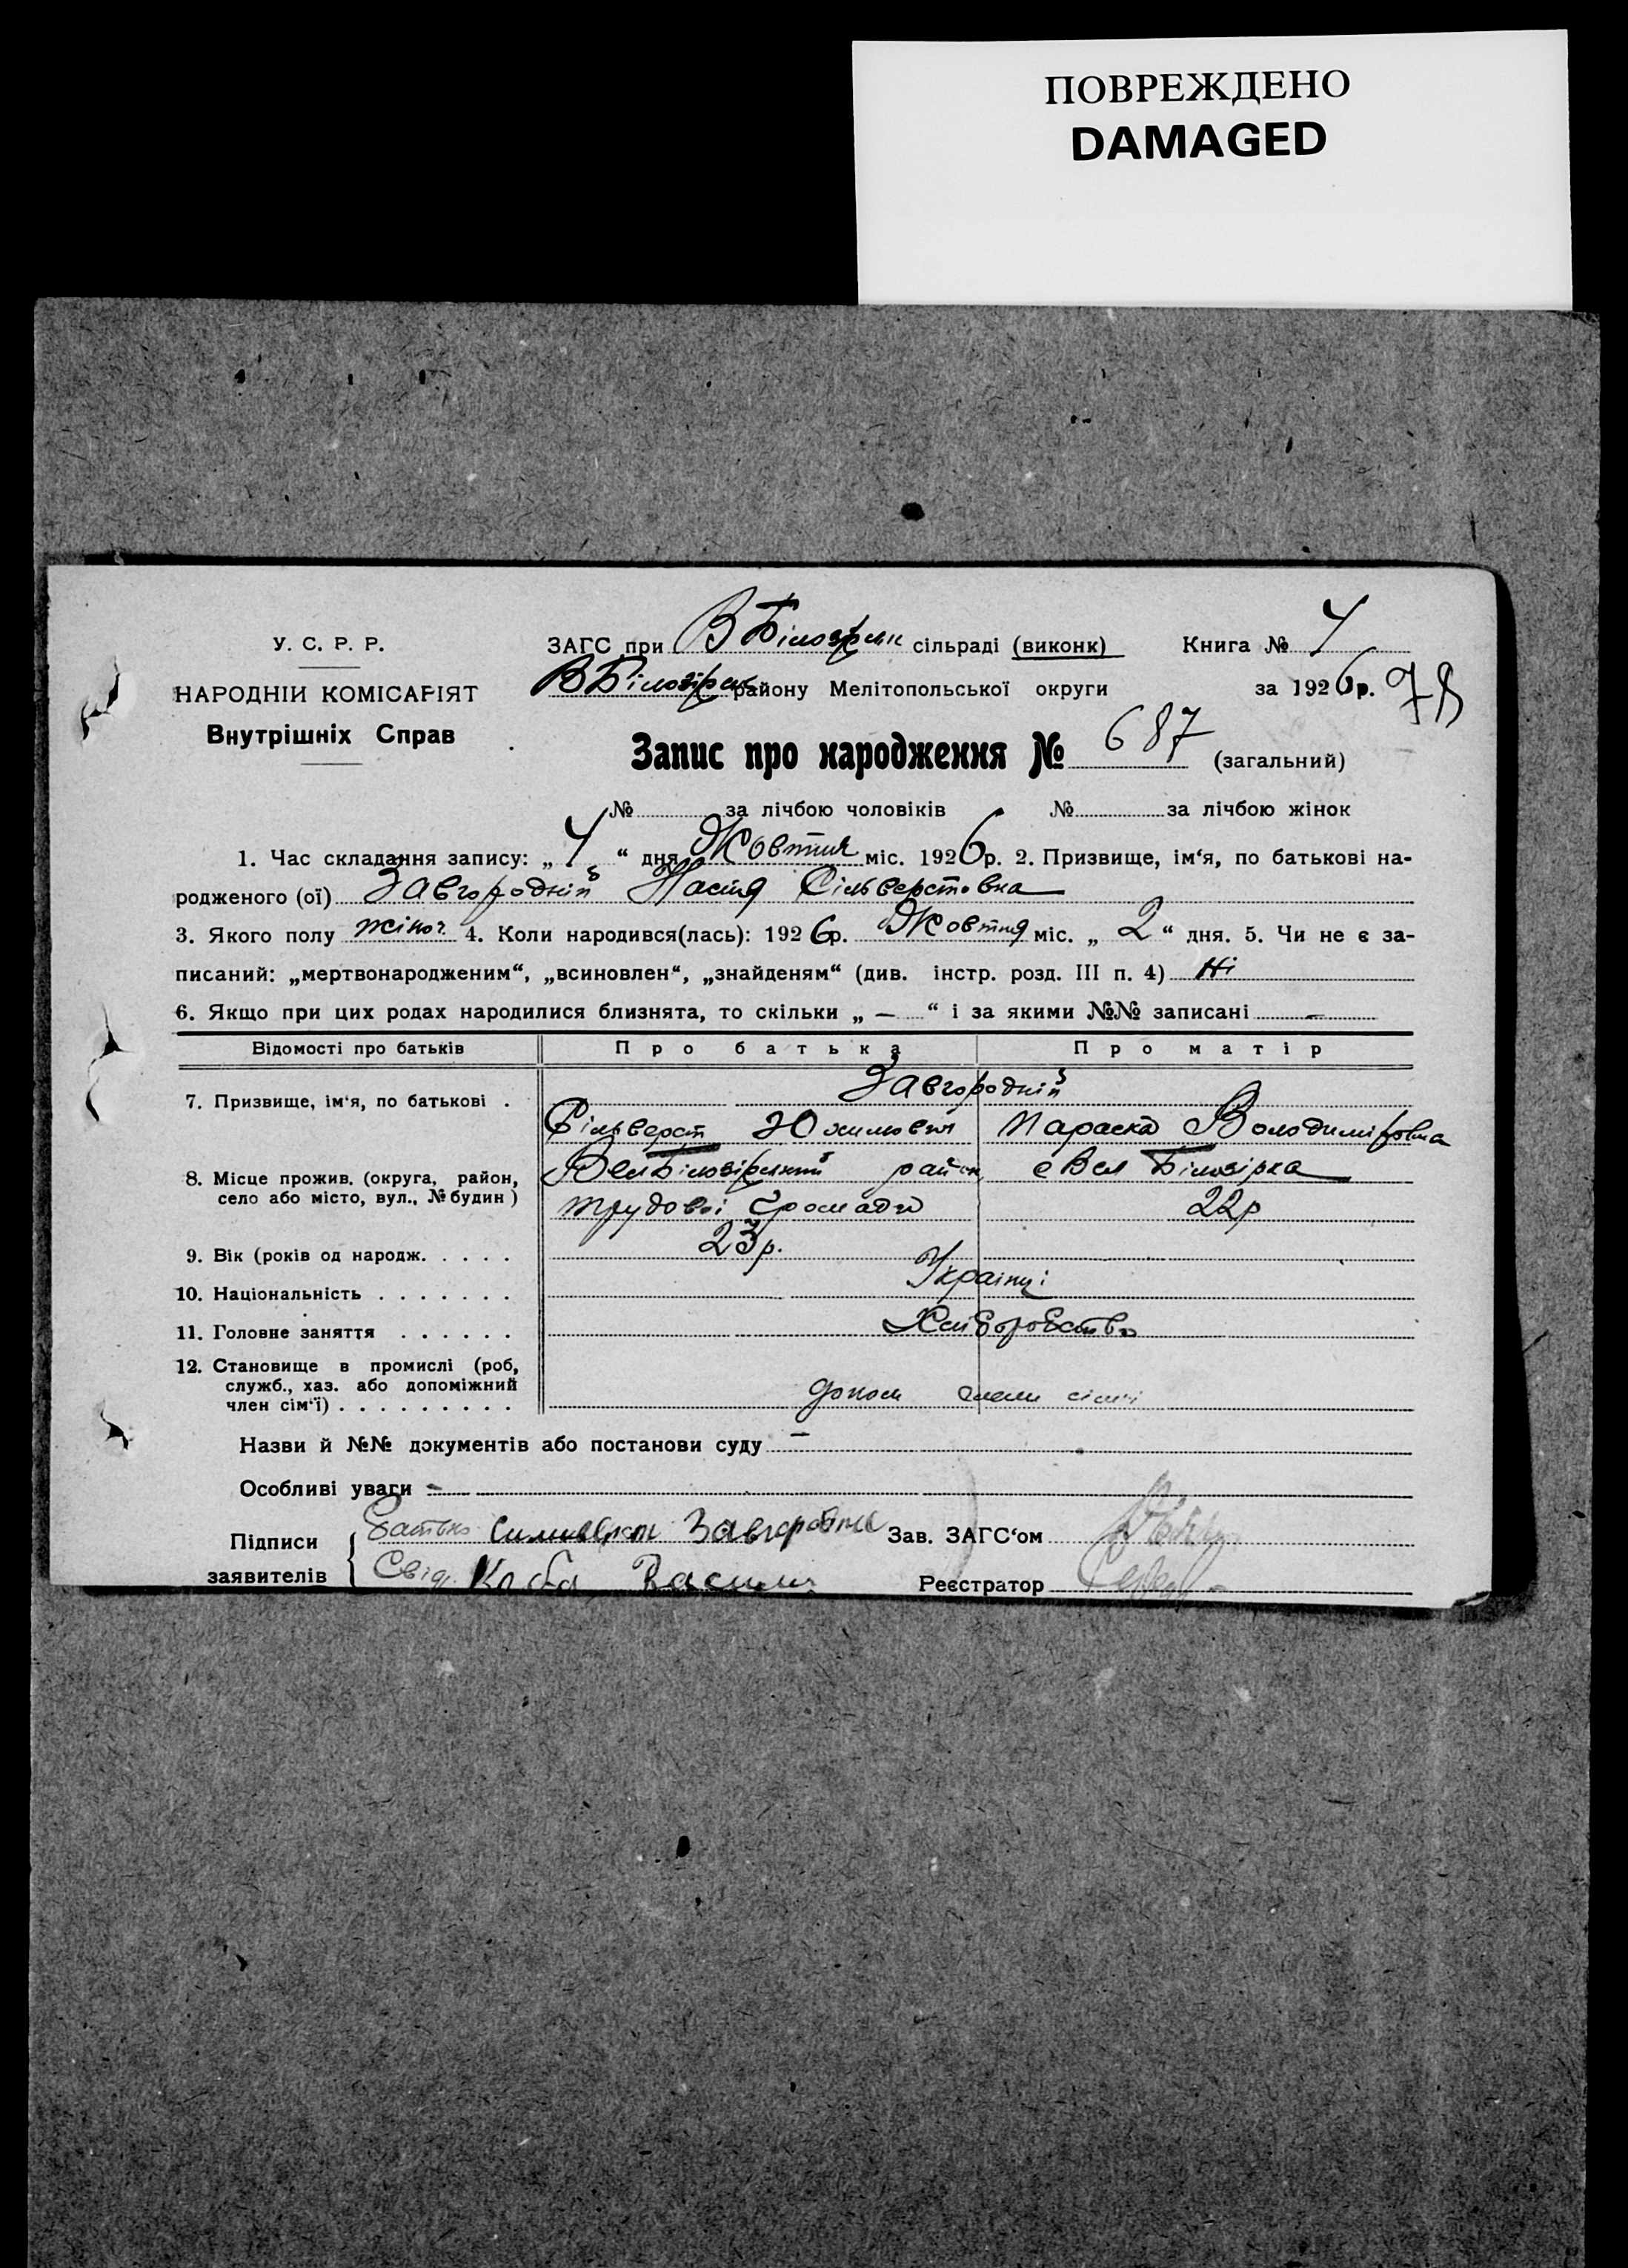 ПОВРЕЖДЕНО
DAMAGED
У. С. Р. Р.
НАРОДНІЙ КОМІСАРІЯТ
Внутрішніх Справ
ЗАГС при В Білозірськ сільраді (виконк) Книга № 4
В Білозірськ району Мелітопольської округи за 1926 р. 78
Запис про народження № 687 (загальний)
№ за лічбою чоловіків № за лічбою жінок
1. Час складання запису: „ 4 “ дня Жовтня міс. 1926 р. 2. Призвище, ім‘я, по батькові на-
родженого (ої) Завгородній Настя Сільверстовна
3. Якого полу жіноч. 4. Коли народився(лась): 1926 р. Жовтня міс. „ 2 “ дня. 5. Чи не є за-
писаний: „мертвонародженим“, „всиновлен“, „знайденям“ (див. інстр. розд. III п. 4) Ні
6. Якщо при цих родах народилися близнята, то скільки „ — “ і за якими №№ записані —
Відомості про батьків Про батька Про матір
7. Призвище, ім‘я, по батькові . Завгородній
Сільверст Параска Володиміровна
8. Місце прожив. (округа, район, село або місто, вул., № будин) Вел Білозірський район с Вел Білозірка
трудової громади 22р
9. Вік (років од народж. . . . . 23р.
10. Національність . . . . . . . Українці
11. Головне заняття . . . . . . Хліборобство
12. Становище в промислі (роб,
служб., хаз. або допоміжний
член сім‘ї) . . . . . . . . . допом члени сім'ї
Назви й №№ документів або постанови суду —
Особливі уваги —
Підписи Батько Сильверст Завгородни Зав. ЗАГС‘ом
заявителів Свід. Василь Реєстратор